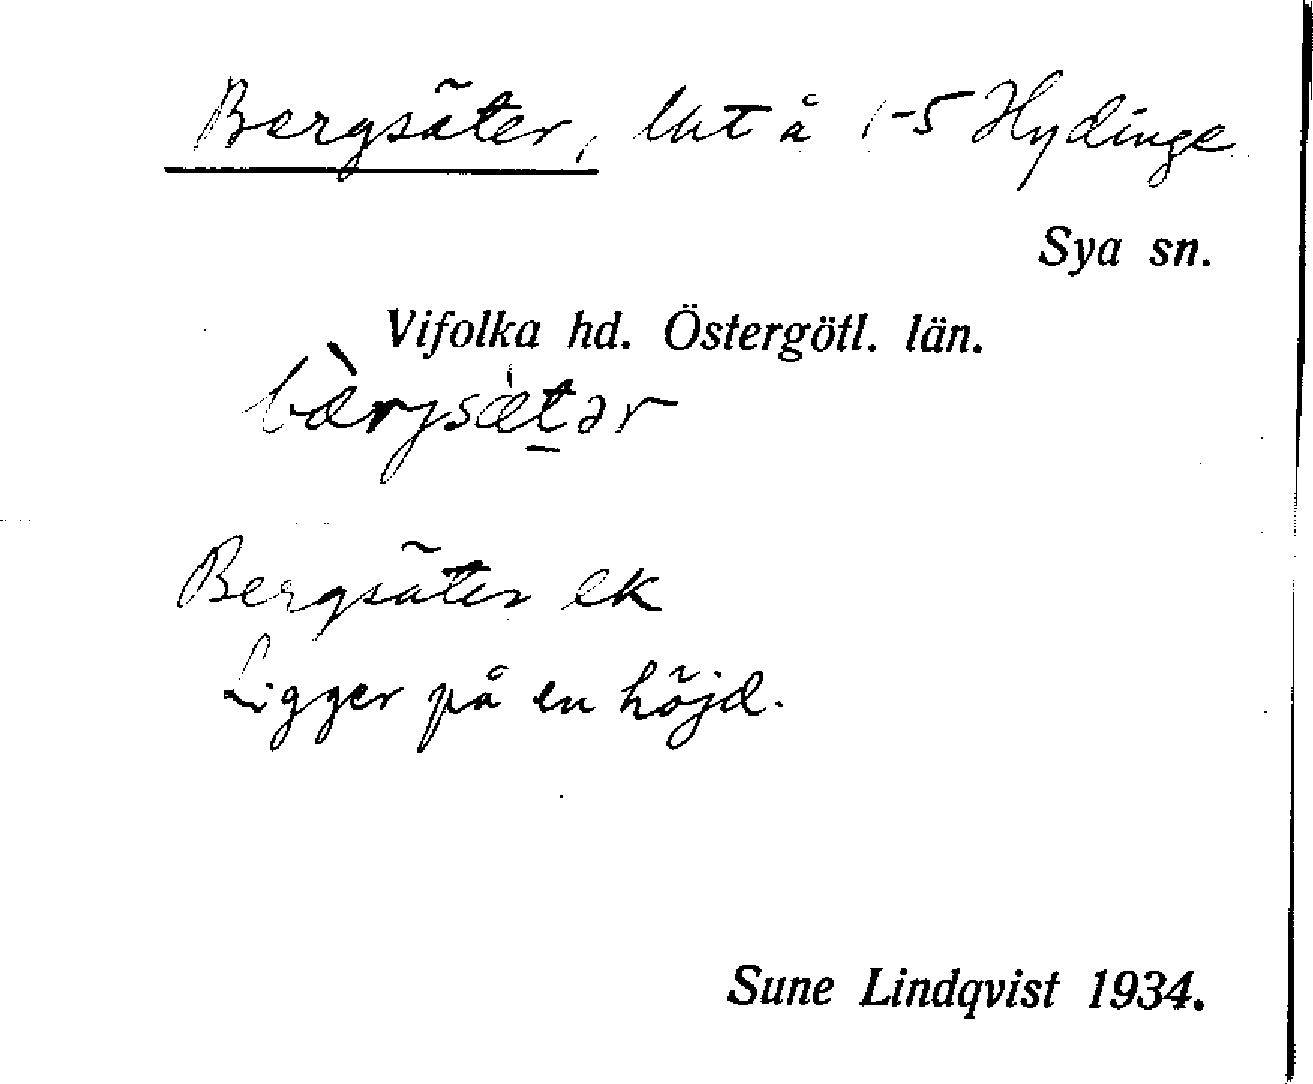 Bergsäter, lht å 1-5 Hydinge
Sya sn.
Vifolka hd. Östergötl. län.
bæ̀rjsæ̀tər
Bergsäter ek
Ligger på en höjd.
Sune Lindqvist 1934.